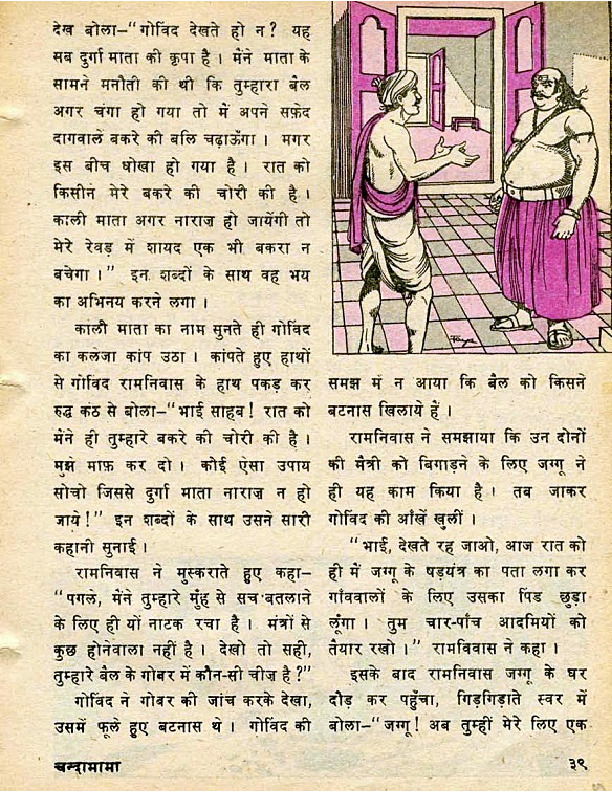 देख बोला–"गोविंद देखते हो न? यह
सब दुर्गा माता की कृपा है। मैंने माता के
सामने मनौती की थी कि तुम्हारा बैल
अगर चंगा हो गया तो में अपने सफ़ेद
दागवाले बकरे की बलि चढ़ाऊँगा। मगर
इस बीच धोखा हो गया है। रात को
किसीने मेरे बकरे की चोरी की है।
काली माता अगर नाराज़ हो जायेंगी तो
मेरे रेवड़ में शायद एक भी बकरा न
बचेगा।" इन शब्दों के साथ वह भय
का अभिनय करने लगा।
काली माता का नाम सुनते ही गोविंद
का कलेजा कांप उठा। कांपते हुए हाथों
से गोविंद रामनिवास के हाथ पकड़ कर
रुद्ध कंठ से बोला–"भाई साहब! रात को
मैंने ही तुम्हारे बकरे की चोरी की है।
मुझे माफ़ कर दो। कोई ऐसा उपाय
सोचो जिससे दुर्गा माता नाराज़ न हो
जाये!" इन शब्दों के साथ उसने सारी
कहानी सुनाई।
रामनिवास ने मुस्कराते हुए कहा–
"पगले, मैंने तुम्हारे मुंह से सच बतलाने
के लिए ही यों नाटक रचा है। मंत्रों से
कुछ होनेवाला नहीं है। देखो तो सही,
तुम्हारे बैल के गोबर में कौन-सी चीज़ है?"
गोविंद ने गोबर की जांच करके देखा,
उसमें फूले हुए बटनास थे। गोविंद की
समझ में न आया कि बैल को किसने
बटनास खिलाये हैं।
रामनिवास ने समझाया कि उन दोनों
की मैत्री को बिगाड़ने के लिए जग्गू ने
ही यह काम किया है। तब जाकर
गोविंद की आँखें खुलीं।
"भाई, देखते रह जाओ, आज रात को
ही में जग्गू के षड़यंत्र का पता लगा कर
गाँववालों के लिए उसका पिंड छुड़ा
लूँगा। तुम चार-पाँच आदमियों को
तैयार रखो।" रामविवास ने कहा।
इसके बाद रामनिवास जग्गू के घर
दौड़ कर पहुँचा, गिड़गिड़ाते स्वर में
बोला–"जग्गू! अब तुम्हीं मेरे लिए एक
चन्दामामा
३९